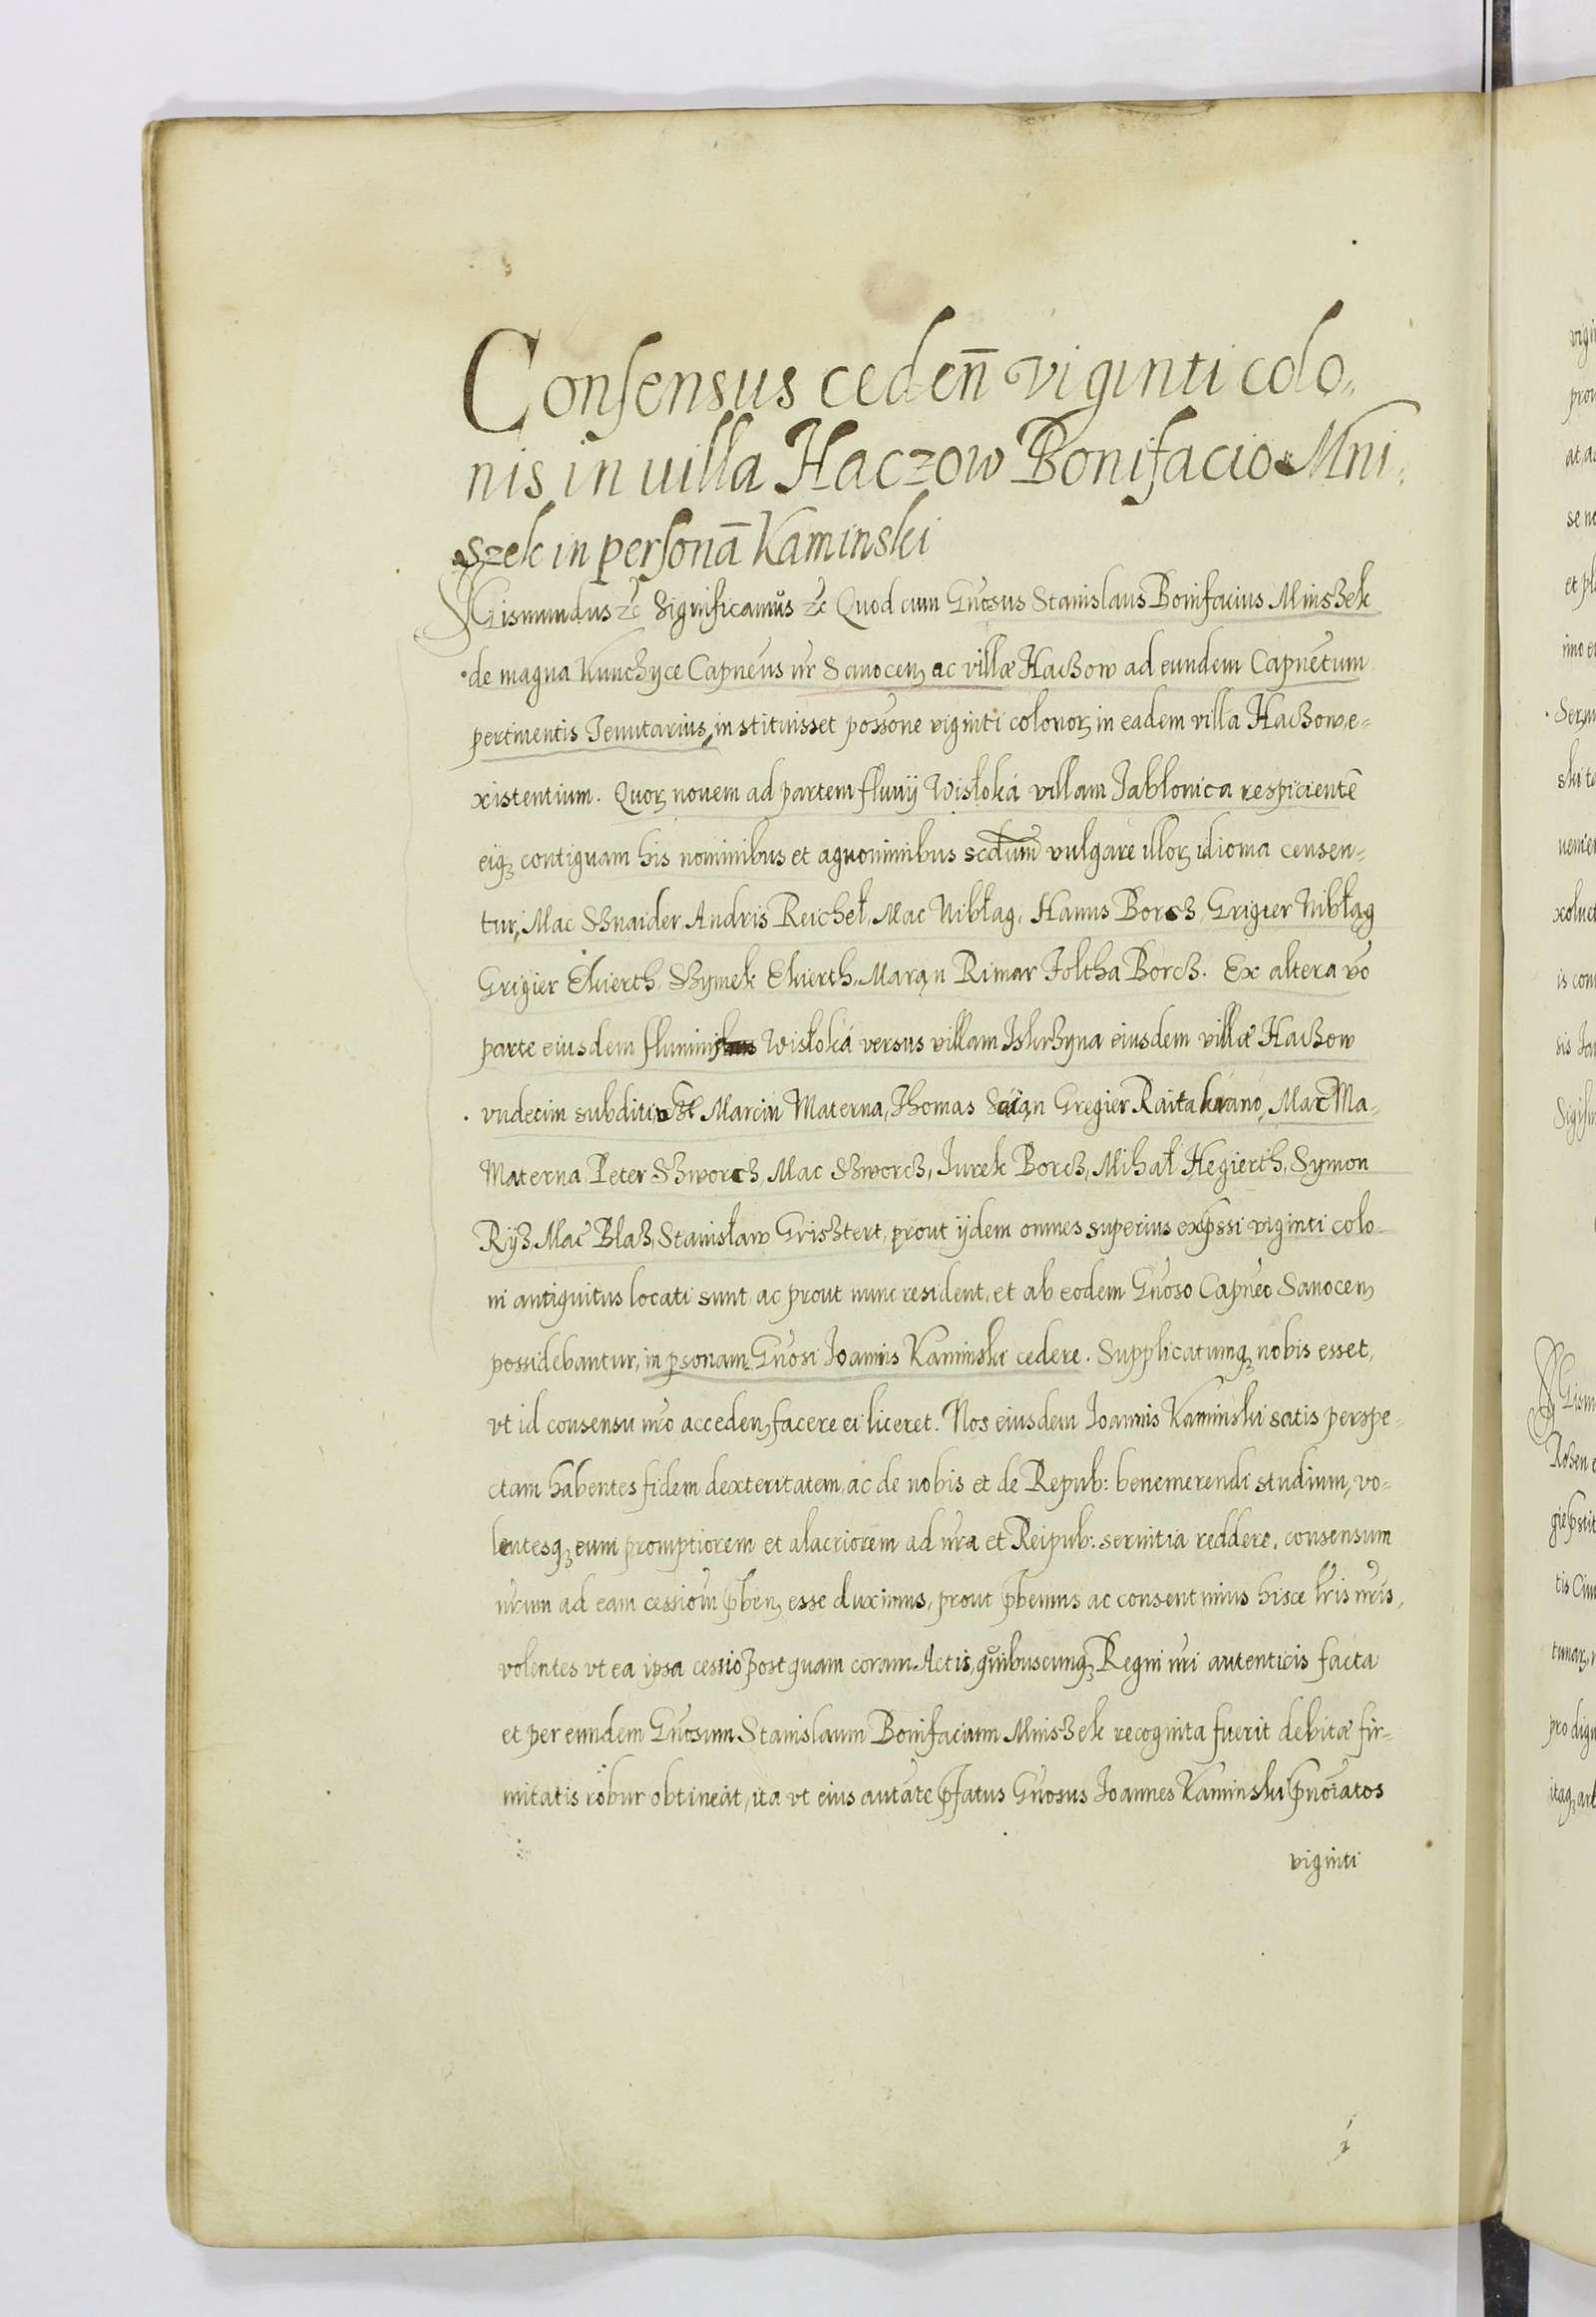 Consensus cedeñ viginti colo„
nis in uilla Haczow Bonifacio Mni„
szek in personā Kaminski
Sigismundus ꝛc̃ Significamůs ꝛc̃ Quod cum Gñosus Stanislaus Bonifacius Mniszek
de magna Kunchyce Capneus ñr Sanoceñ ac villæ Haczow ad eundem Capnetum
pertinentis Tenutarius, instituisset possõne viginti colonoꝝ in eadem villa Haczow e-
xistentium. Quoꝝ nouem ad partem fluuij Wisłoká villam Jablonica respicientē
eiqꝫ contiguam his nominibus et agnominibus scdum vulgare illoꝝ idioma censen-
tur, Mac Sznaider, Andris Reichel, Mac Nibłag, Hanus Borcz, Grigier Nibłag
Grigier Ekierth, Szymek Ekierth, Marąn Rimar Joltha Borcz. Ex altera vo
parte eiusdem fluminis Wisłoká versus villam Iskrzyna eiusdem villæ Haczow
vndecim subditi, Marcin Materna, Thomas Gregier Raita Mac Ma-
Materna Peter Szworcz, Mac Szworcz, Iurek Borcz, Mihał Hegierth, Symon
Rijz, Mac Blaz, Stanisław Grisztert, prout ijdem omnes superius expssi viginti colo-
ni antiquitus locati sunt, ac prout nunc resident, et ab eodem Gñoso Capneo Sanoceñ
possidebantur, in psonam Gñosi Ioannis Kaminski cedere. Supplicatumqꝫ nobis esset,
vt id consensu nřo accedeñ facere ei liceret. Nos eiusdem Ioannis Kaminski satis perspe-
ctam habentes fidem dexteritatem, ac de nobis et de Repub: benemerendi studium, vo-
lentesqꝫ eum promptiorem et alacriorem ad nřa et Reipub: seruitia reddere, consensum
nřum ad eam cessiom p̃beñ esse duximus, prout p̃bemus ac consentimus hisce lřis nřis,
volentes vt ea ipsa cessio postquam coram Actis, quibuscunqꝫ Regni nři autenticis facta
et per eundem Gñosum Stanislaum Bonifacium Mniszek recognita fuerit debitæ fir-
mitatis robur obtineat, ita vt eius autate p̃fatus Gñosus Ioannes Kaminski p̃noiatos
viginti